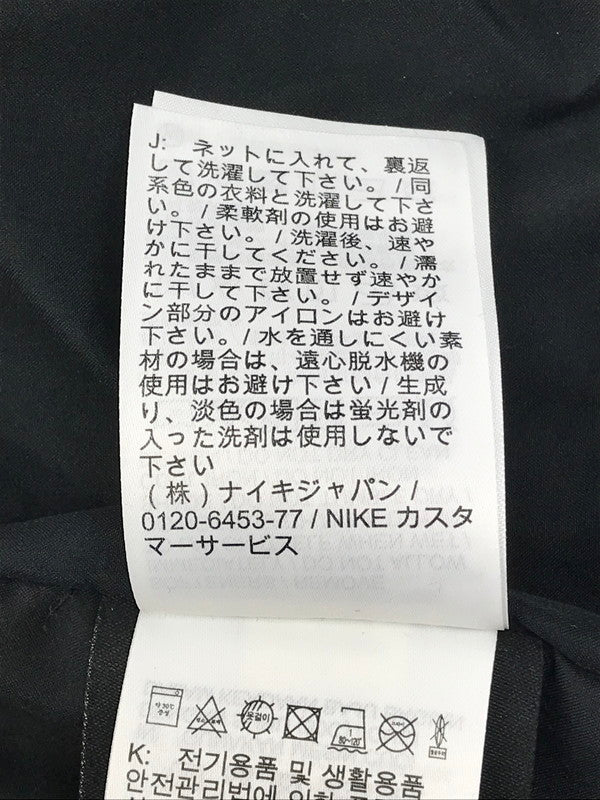 J: ネットに入れて、裏返
して洗濯して下さい。/ 同
系色の衣料と洗濯して下さ
い。/ 柔軟剤の使用はお避
け下さい。/ 洗濯後、速や
かに干してください。/ 濡
れたままで放置せず速やか
に干して下さい。/ デザイ
ン部分のアイロンはお避け
下さい。/ 水を通しにくい素
材の場合は、遠心脱水機の
使用はお避け下さい / 生成
り、淡色の場合は蛍光剤の
入った洗剤は使用しないで
下さい
(株) ナイキジャパン /
0120-6453-77 / NIKE カスタ
マーサービス
약 30℃
중성
옷걸이
K: 전기용품 및 생활용품
안전관리법에 의한